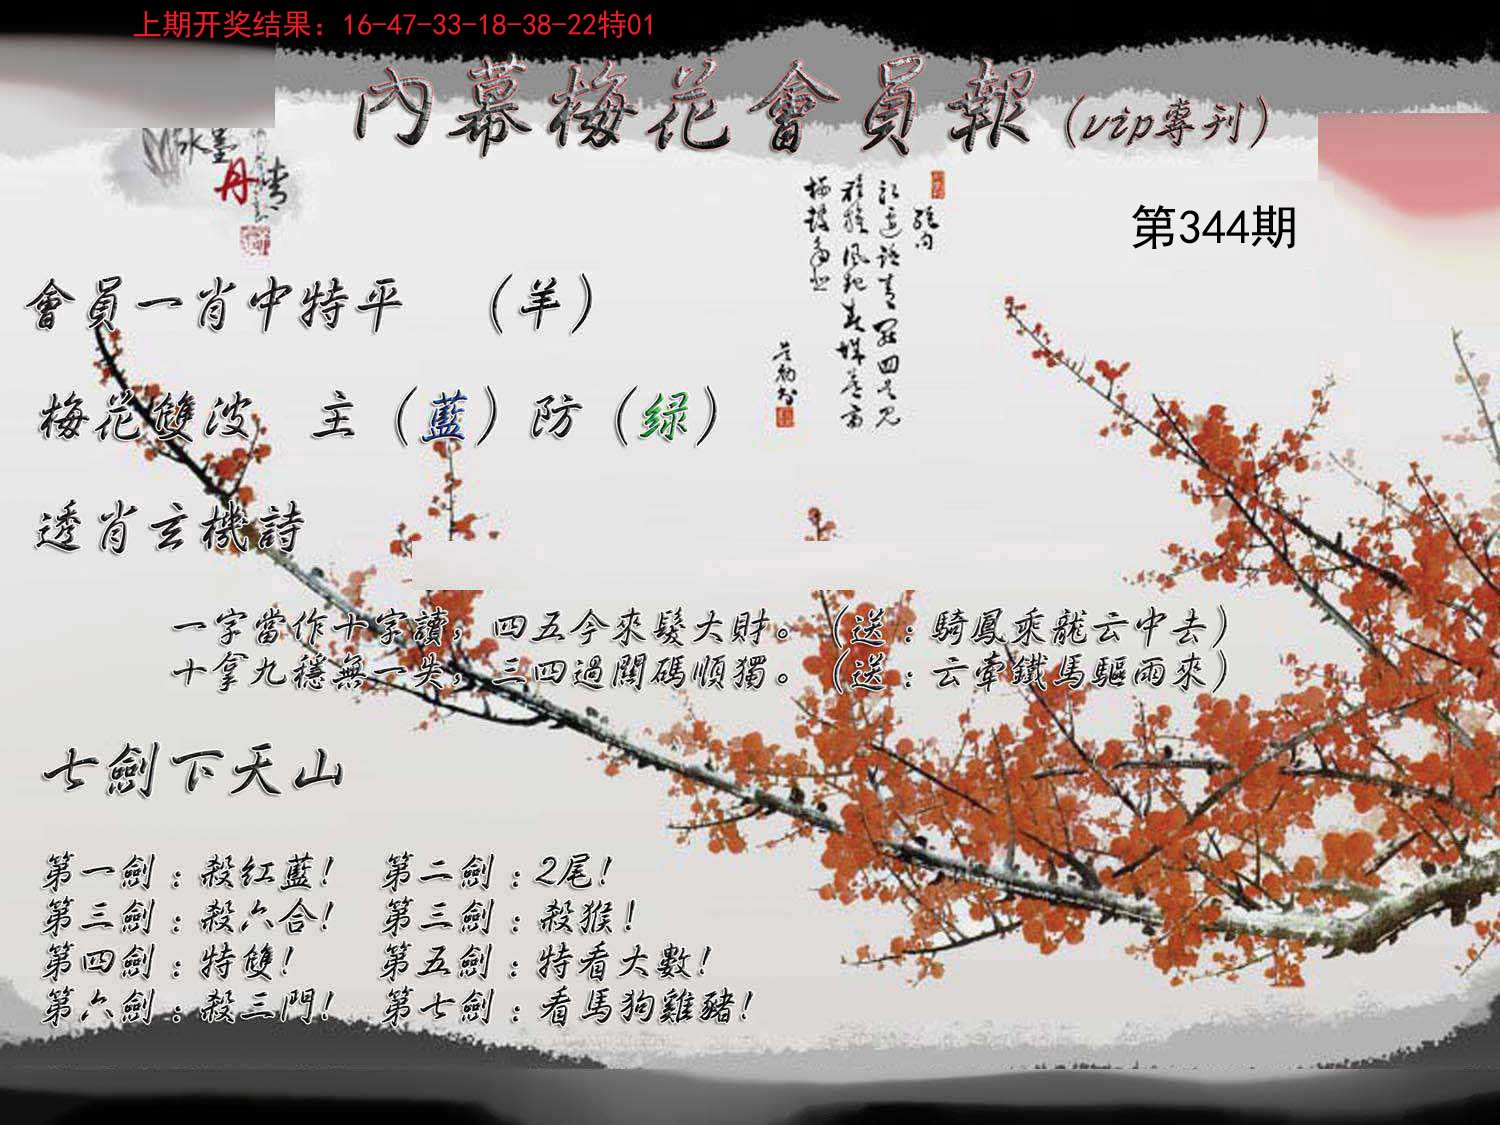 上期开奖结果：16-47-33-18-38-22特01
內幕梅花會員報（vip專刊）
水墨
丹青
第344期
會員一肖中特平　（羊）
梅花雙波　主（藍）防（绿）
透肖玄機詩
一字當作十字讀，四五今來髮大財。（送：騎鳳乘龍云中去）
十拿九穩無一失，三四過關碼順獨。（送：云牽鐵馬驅雨來）
七劍下天山
第一劍：殺红藍！　第二劍：2尾！
第三劍：殺六合！　第三劍：殺猴！
第四劍：特雙！　第五劍：特看大數！
第六劍：殺三門！　第七劍：看馬狗雞豬！